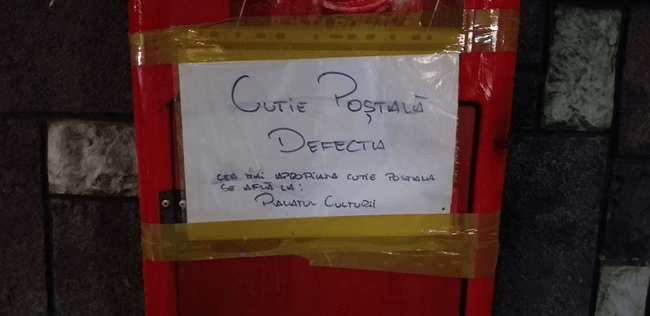 POȘTA ROMÂNĂ
CUTIE POȘTALĂ
DEFECTĂ
CEA MAI APROPIATĂ CUTIE POȘTALĂ
SE AFLĂ LA:
PALATUL CULTURII